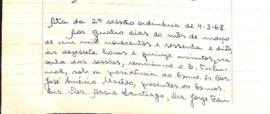 Ata da 2ª sessão ordinária de 4-3-68.
Aos quatro dias do mês de março
de um mil novecentos e sessenta e oito,
às dezessete horas e quinze minutos, na
sala das sessões, reuniu-se o E. Tribu-
nal, sob a presidência do Exmo. Sr. Des.
José Américo Macêdo, presentes os Exmos.
Srs. Des. Assis Santiago, Drs. Jorge Fon-